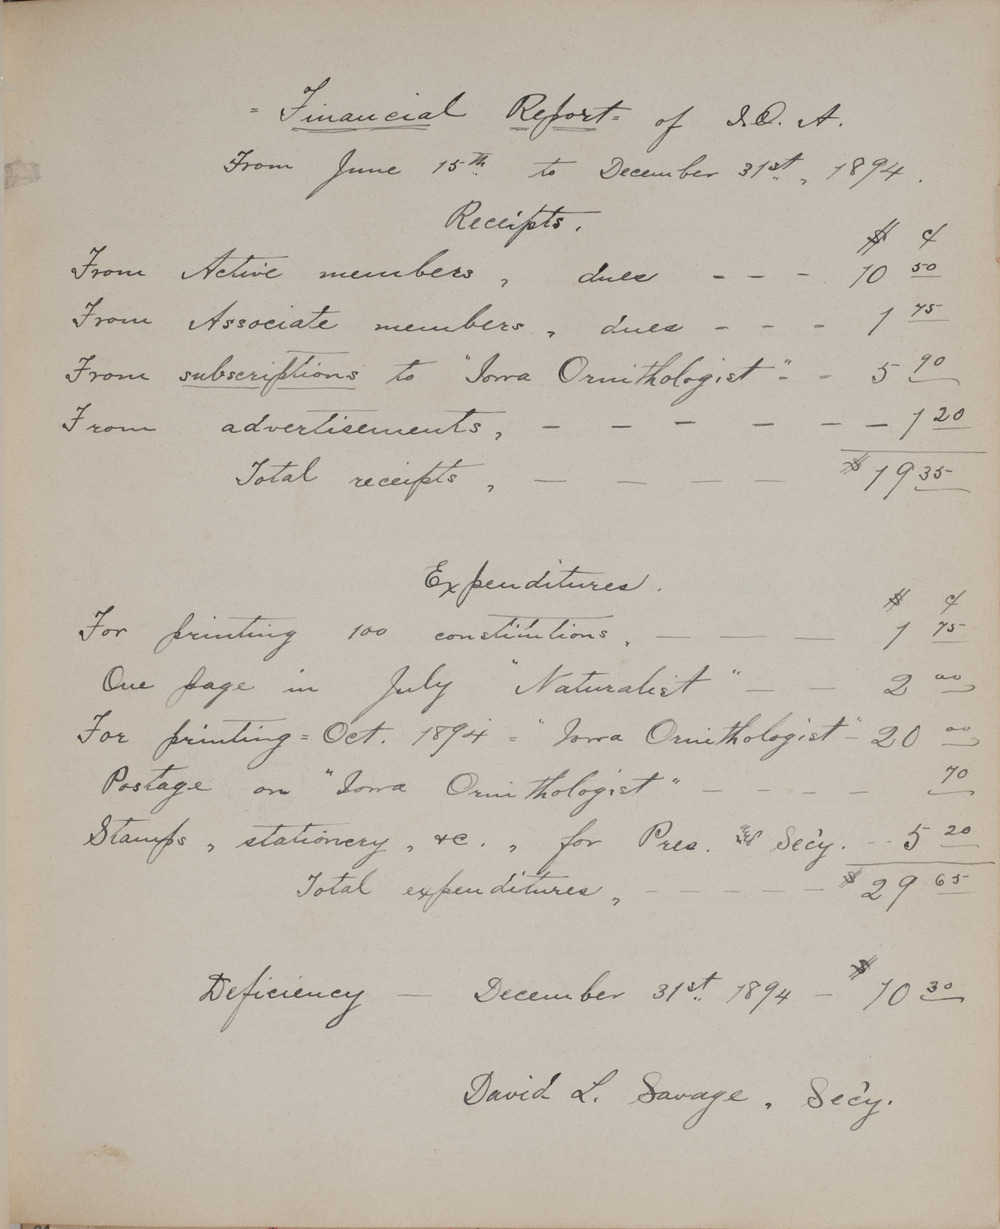 = Financial Report = of I.O.A.
From June 15th to December 31st, 1894.
Receipts.
$ ¢
From Active members, dues - - - 10 50
From Associate members, dues - - - 1 75
From subscriptions to "Iowa Ornithologist" - - 5 90
From advertisements, - - - - - - 1 20
Total receipts, - - - - $19 35
Expenditures.
$ ¢
For printing 100 constitutions, - - - 1 75
One page in July "Naturalist" - - 2 00
For printing = Oct. 1894 = "Iowa Ornithologist" - 20 00
Postage on "Iowa Ornithologist" - - - - 70
Stamps, stationery, &c., for Pres. & Sec'y. - - 5 20
Total expenditures, - - - - - - $29 65
Deficiency - December 31st 1894 - $10 30
David L. Savage, Sec'y.